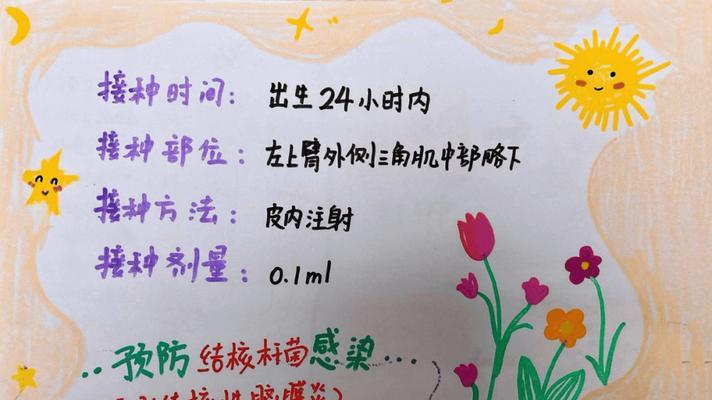 接种时间: 出生24小时内
接种部位: 左上臂外侧三角肌中部略下
接种方法: 皮内注射
接种剂量: 0.1ml
..预防结核杆菌感染...
结核性脑膜炎)